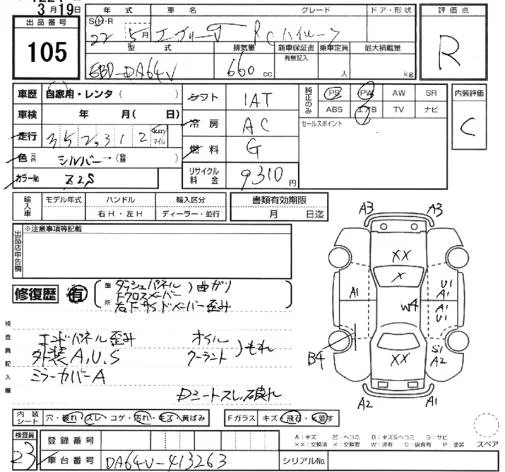 3月19日
出品番号
105
年式 車名 グレード ドア・形状
S・H・R
22 5月 エブリーT PCハイルーフ
型式 排気量 新車保証書 乗車定員 最大積載量
有無記入
EBD-DA64V 660 cc 人 kg
評価点
R
車歴 自家用・レンタ( )
車検 年 月( 日)
走行 35 2,312 km マイル
色 シルバー→
カラーNo. Z2S
シフト IAT
冷房 AC
燃料 G
リサイクル料金 9310円
純正のみ
PS PW AW SR
ABS エアB TV ナビ
セールスポイント
内装評価
C
輸入車 モデル年式 ハンドル 輸入区分
右H・左H ディーラー・並行
書類有効期限
月 日迄
出品店申告欄
※注意事項等記載
修復歴 有
箇所
ダッシュパネル)曲がり
Fクロスメンバー
右Fサイドメンバー歪み
検査員記入欄
エンドパネル歪み オイル
外装A.U.S クーラント)もれ
ミラーカバーA
Dミュートスレ破れ
A3 A3
XX
X
A1
W4
U1
A1
A1
U1
B4
XX
S1
A2
A2 A1
内装シート
穴・破れ・スレ・コゲ・汚れ・キズ・黄ばみ
Fガラス キズ・飛石・要す
A:キズ 凹:ヘコミ B:キズ&ヘコミ S:サビ
X:交換 XX:交換済 W:波有 C:腐食有 P:塗装
スペア
検査員
23
登録番号
車台番号 DA64V-413263
シリアルNo.